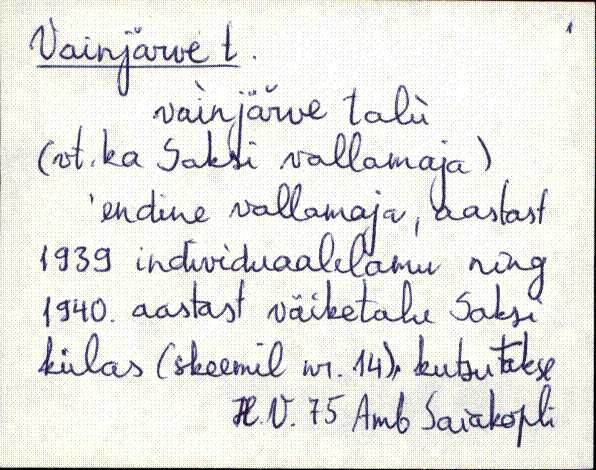 1
Vainjärve t.
vàinjä̆rve talù
(vt. ka Saksi vallamaja)
'endine vallamaja, aastast
1939 individuaalelamu ning
1940. aastast väiketalu Saksi
külas (skeemil nr. 14), kutsutakse
H.V. 75 Amb Saiakopli